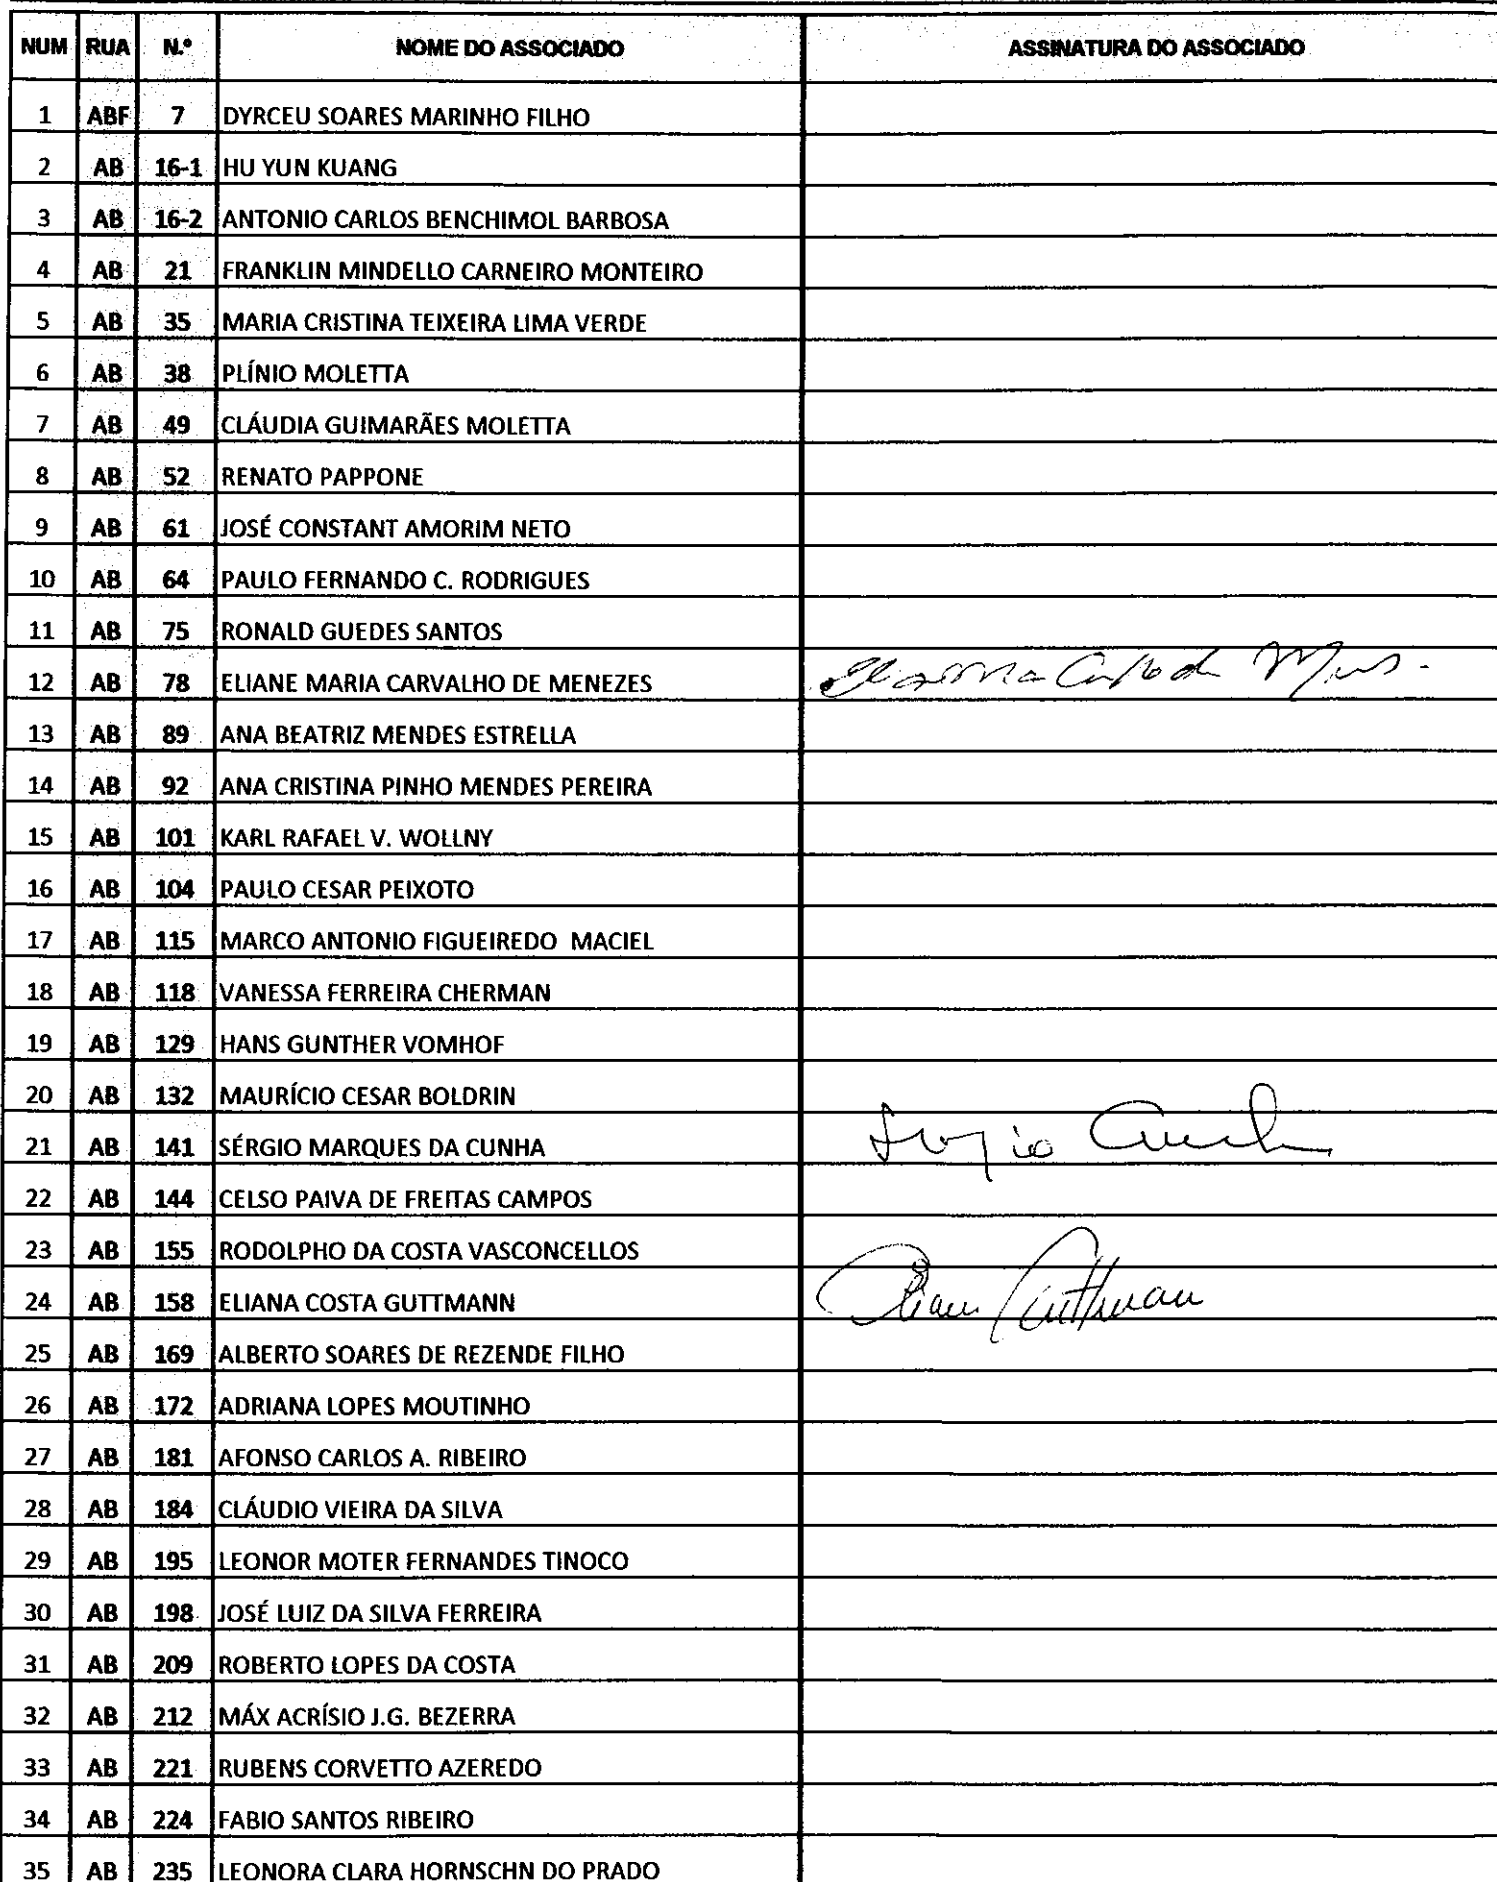 NUM RUA N.º NOME DO ASSOCIADO ASSINATURA DO ASSOCIADO
1 ABF 7 DYRCEU SOARES MARINHO FILHO
2 AB 16-1 HU YUN KUANG
3 AB 16-2 ANTONIO CARLOS BENCHIMOL BARBOSA
4 AB 21 FRANKLIN MINDELLO CARNEIRO MONTEIRO
5 AB 35 MARIA CRISTINA TEIXEIRA LIMA VERDE
6 AB 38 PLÍNIO MOLETTA
7 AB 49 CLÁUDIA GUIMARÃES MOLETTA
8 AB 52 RENATO PAPPONE
9 AB 61 JOSÉ CONSTANT AMORIM NETO
10 AB 64 PAULO FERNANDO C. RODRIGUES
11 AB 75 RONALD GUEDES SANTOS
12 AB 78 ELIANE MARIA CARVALHO DE MENEZES
13 AB 89 ANA BEATRIZ MENDES ESTRELLA
14 AB 92 ANA CRISTINA PINHO MENDES PEREIRA
15 AB 101 KARL RAFAEL V. WOLLNY
16 AB 104 PAULO CESAR PEIXOTO
17 AB 115 MARCO ANTONIO FIGUEIREDO MACIEL
18 AB 118 VANESSA FERREIRA CHERMAN
19 AB 129 HANS GUNTHER VOMHOF
20 AB 132 MAURÍCIO CESAR BOLDRIN
21 AB 141 SÉRGIO MARQUES DA CUNHA Sergio Cunha
22 AB 144 CELSO PAIVA DE FREITAS CAMPOS
23 AB 155 RODOLPHO DA COSTA VASCONCELLOS
24 AB 158 ELIANA COSTA GUTTMANN Eliana Guttmann
25 AB 169 ALBERTO SOARES DE REZENDE FILHO
26 AB 172 ADRIANA LOPES MOUTINHO
27 AB 181 AFONSO CARLOS A. RIBEIRO
28 AB 184 CLÁUDIO VIEIRA DA SILVA
29 AB 195 LEONOR MOTER FERNANDES TINOCO
30 AB 198 JOSÉ LUIZ DA SILVA FERREIRA
31 AB 209 ROBERTO LOPES DA COSTA
32 AB 212 MÁX ACRÍSIO J.G. BEZERRA
33 AB 221 RUBENS CORVETTO AZEREDO
34 AB 224 FABIO SANTOS RIBEIRO
35 AB 235 LEONORA CLARA HORNSCHN DO PRADO